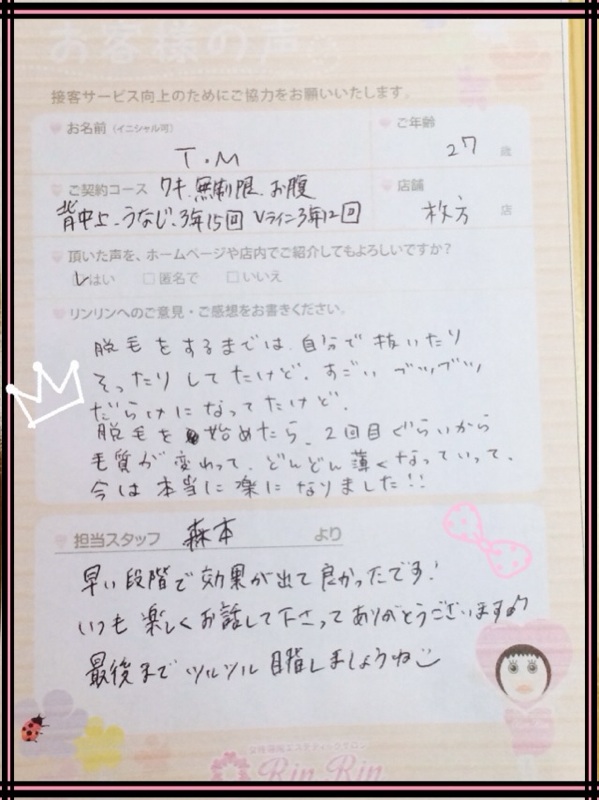 お客様の声
接客サービス向上のためにご協力をお願いいたします。
お名前（イニシャル可）
T.M
ご年齢
27 歳
ご契約コース ワキ.無制限.お腹
背中上.うなじ.3年15回 Vライン3年12回
店舗
枚方 店
頂いた声を、ホームページや店内でご紹介してもよろしいですか？
はい □匿名で □いいえ
リンリンへのご意見・ご感想をお書きください。
脱毛をするまでは、自分で抜いたり
そったりしてたけど、すごいブツブツ
だらけになってたけど、
脱毛を始めたら、2回目ぐらいから
毛質が変わって、どんどん薄くなっていって、
今は本当に楽になりました!!
担当スタッフ 森本 より
早い段階で効果が出て良かったです!
いつも楽しくお話して下さってありがとうございます♪
最後までツルツル目指しましょうね
女性専用エステティックサロン
Rin Rin